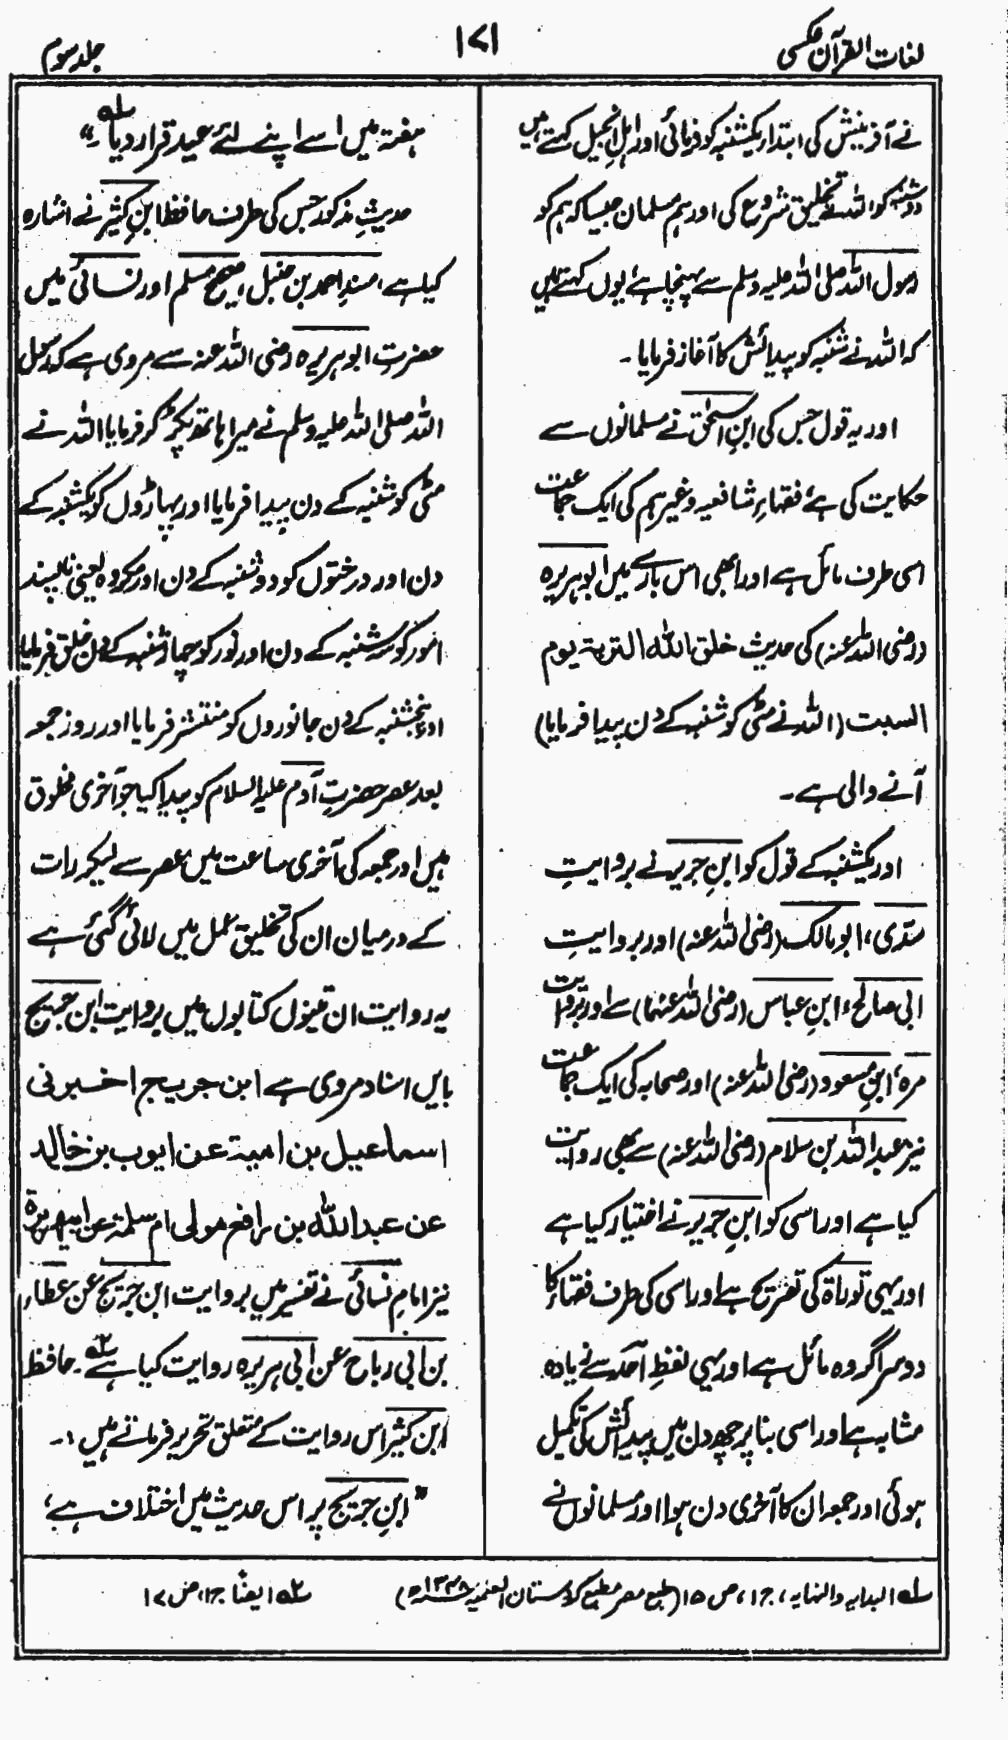 لغات القرآن عکسی
۱۷۱
جلد سوم
نے آفرینش کی ابتدا یکشنبہ کو فرمائی اور اہلِ انجیل کہتے ہیں
دوشنبہ کو اللہ نے تخلیق شروع کی اور ہم مسلمان جیسا کہ ہم کو
رسول اللہ صلی اللہ علیہ وسلم سے پہنچا ہے یوں کہتے ہیں
کہ اللہ نے شنبہ کو پیدائش کا آغاز فرمایا۔
اور یہ قول جس کی ابنِ اسحٰق نے مسلمانوں سے
حکایت کی ہے فقہاءِ شافعیہ وغیرہم کی ایک جماعت
اسی طرف مائل ہے اور ابھی اس بارے میں ابوہریرہ
(رضی اللہ عنہ) کی حدیث خلق اللہ التربۃ یوم
السبت (اللہ نے مٹی کو شنبہ کے دن پیدا فرمایا)
آنے والی ہے۔
اور یکشنبہ کے قول کو ابنِ جریر نے بروایتِ
سدّی، ابومالک (رضی اللہ عنہ) اور بروایتِ
ابی صالح، ابنِ عباس (رضی اللہ عنہما) سے اور بروایت
مرہ، ابنِ مسعود (رضی اللہ عنہ) اور صحابہ کی ایک جماعت
نیز عبداللہ بن سلام (رضی اللہ عنہ) سے بھی روایت
کیا ہے اور اسی کو ابنِ جریر نے اختیار کیا ہے
اور یہی توراۃ کی تصریح ہے اور اسی کی طرف فقہاء کا
دوسرا گروہ مائل ہے اور یہی لفظِ احد سے زیادہ
مشابہ ہے اور اسی بنا پر چھ دن میں پیدائش کی تکمیل
ہوئی اور جمعہ ان کا آخری دن ہوا اور مسلمانوں نے
ہفتہ میں اسے اپنے لئے عید قرار دیا ۱ؔ"
حدیثِ مذکور جس کی طرف حافظ ابنِ کثیر نے اشارہ
کیا ہے، مسندِ احمد بن حنبل، صحیح مسلم اور نسائی میں
حضرتِ ابوہریرہ رضی اللہ عنہ سے مروی ہے کہ رسول
اللہ صلی اللہ علیہ وسلم نے میرا ہاتھ پکڑ کر فرمایا اللہ نے
مٹی کو شنبہ کے دن پیدا فرمایا اور پہاڑوں کو یکشنبہ کے
دن اور درختوں کو دوشنبہ کے دن اور مکروہ یعنی ناپسند
امور کو سہ شنبہ کے دن اور نور کو چہارشنبہ کے دن خلق فرمایا
اور پنجشنبہ کے دن جانوروں کو منتشر فرمایا اور روز جمعہ
بعد عصر حضرتِ آدم علیہ السلام کو پیدا کیا جو آخری مخلوق
ہیں اور جمعہ کی آخری ساعت میں عصر سے لیکر رات
کے درمیان ان کی تخلیق عمل میں لائی گئی ہے
یہ روایت ان تینوں کتابوں میں بروایت ابن جریج
بایں اسناد مروی ہے ابن جریج اخبرنی
اسماعیل بن امیۃ عن ایوب بن خالد
عن عبد اللہ بن رافع مولی ام سلمۃ عن ابی ھریرۃ
نیز امام نسائی نے تفسیر میں بروایت ابن جریج عن عطاء
بن ابی رباح عن ابی ہریرہ روایت کیا ہے ۲ؔ۔ حافظ
ابن کثیر اس روایت کے متعلق تحریر فرماتے ہیں:۔
"ابنِ جریج پر اس حدیث میں اختلاف ہے،
۱ؔ البدایہ والنہایہ، ج ۱، ص ۱۵ (طبع مصر مطبع کردستان العلمیہ ۱۳۴۸ھ)
۲ؔ ایضًا ج ۱، ص ۱۷